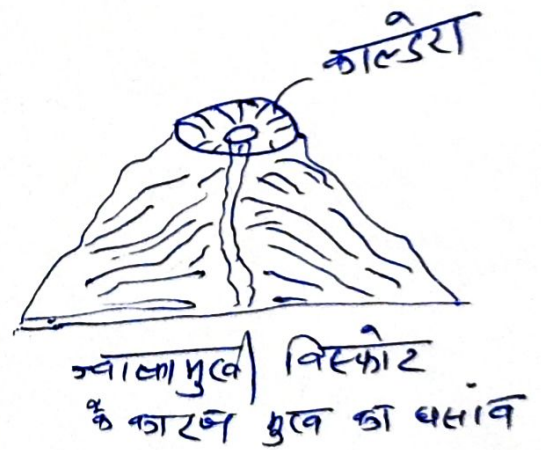 काल्डेरा
ज्वालामुखी विस्फोट
के कारण मुख का धसांव